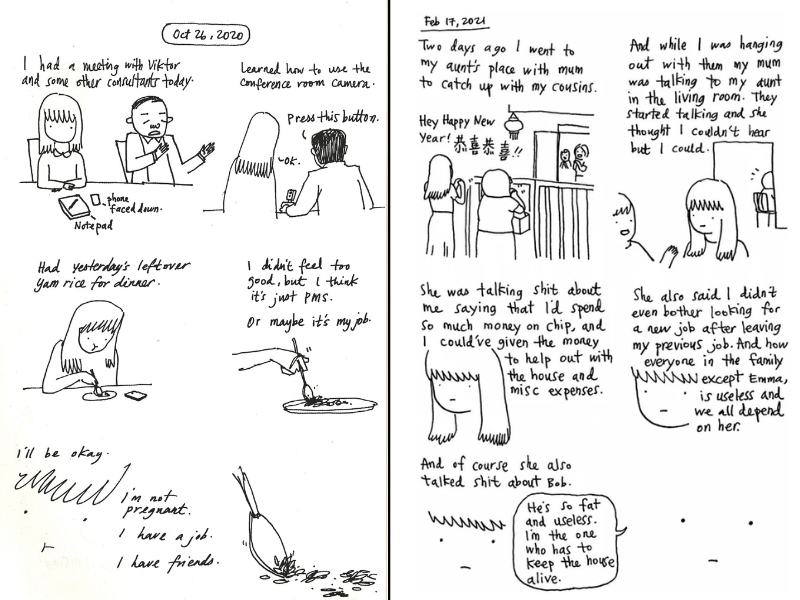 Oct 26, 2020
I had a meeting with Viktor
and some other consultants today.
phone
faced down.
Notepad
Learned how to use the
conference room camera.
Press this button.
OK.
Had yesterday's leftover
yam rice for dinner.
I didn't feel too
good, but I think
it's just PMS.
Or maybe it's my job.
I'll be okay.
I'm not
pregnant.
I have a job.
I have friends.
Feb 17, 2021
Two days ago I went to
my aunt's place with mum
to catch up with my cousins.
Hey Happy New
Year! 恭喜恭喜!!
And while I was hanging
out with them my mum
was talking to my aunt
in the living room. They
started talking and she
thought I couldn't hear
but I could.
She was talking shit about
me saying that I'd spend
so much money on chip, and
I could've given the money
to help out with
the house and
misc expenses.
She also said I didn't
even bother looking for
a new job after leaving
my previous job. And how
everyone in the family
except Emma,
is useless and
we all depend
on her.
And of course she also
talked shit about Bob.
He's so fat
and useless.
I'm the one
who has to
keep the house
alive.